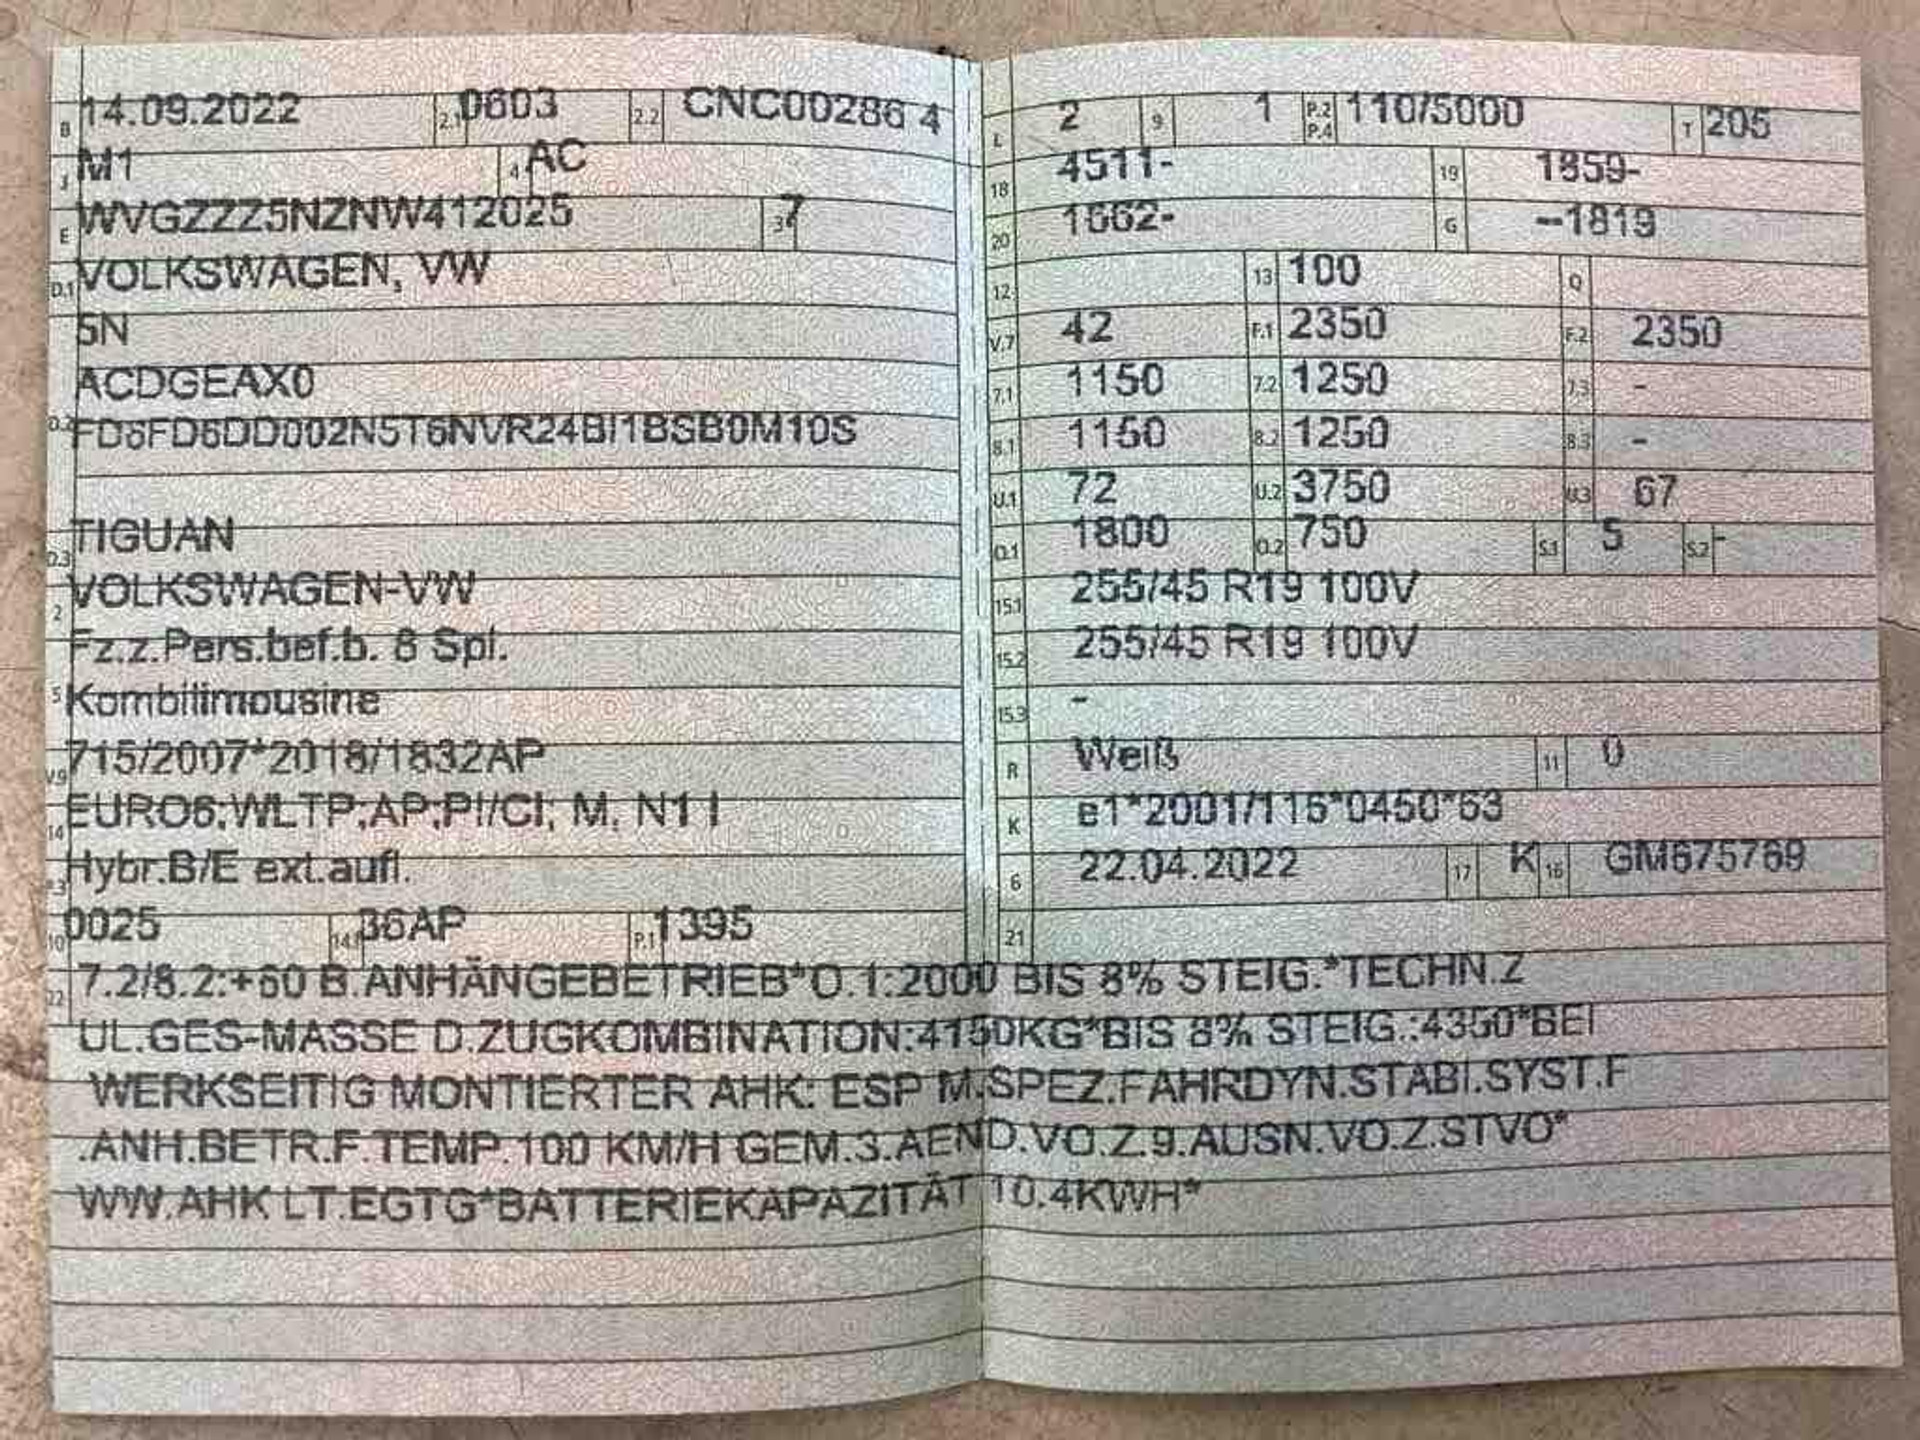 B 14.09.2022 2.1 0603 2.2 CNC00286 4
J M1 4 AC
E WVGZZZ5NZNW412025 3 7
D.1 VOLKSWAGEN, VW
5N
ACDGEAX0
D.2 FD6FD6DD002N5T6NVR24BI1BSB0M10S
D.3 TIGUAN
2 VOLKSWAGEN-VW
Fz.z.Pers.bef.b. 8 Spl.
5 Kombilimousine
V.9 715/2007*2018/1832AP
14 EURO6;WLTP;AP;PI/CI; M, N1 I
P.3 Hybr.B/E ext.aufl.
10 0025 14.1 36AP P.1 1395
L 2 9 1 P.2 P.4 110/5000 T 205
18 4511- 19 1859-
20 1662- G --1819
12 13 100 Q
V.7 42 F.1 2350 F.2 2350
7.1 1150 7.2 1250 7.3 -
8.1 1150 8.2 1250 8.3 -
U.1 72 U.2 3750 U.3 67
O.1 1800 O.2 750 S.1 5 S.2 -
15.1 255/45 R19 100V
15.2 255/45 R19 100V
15.3 -
R Weiß 11 0
K e1*2001/116*0450*63
6 22.04.2022 17 K 16 GM675769
21
22 7.2/8.2:+60 B.ANHÄNGEBETRIEB*O.1:2000 BIS 8% STEIG.*TECHN.Z
UL.GES-MASSE D.ZUGKOMBINATION:4150KG*BIS 8% STEIG.:4350*BEI
WERKSEITIG MONTIERTER AHK: ESP M.SPEZ.FAHRDYN.STABI.SYST.F
.ANH.BETR.F.TEMP.100 KM/H GEM.3.AEND.VO.Z.9.AUSN.VO.Z.STVO*
WW.AHK LT.EGTG*BATTERIEKAPAZITÄT 10.4KWH*